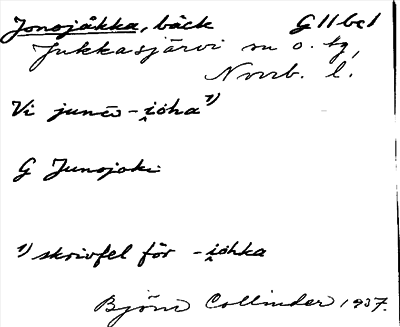 Jonojåkka, bäck G11bc1
Jukkasjärvi sn o. tg,
Norrb. l.
Vi junēs-i̯oha¹⁾
G Junojoki
¹⁾ skrivfel för -i̯ohka
Björn Collinder 1937.